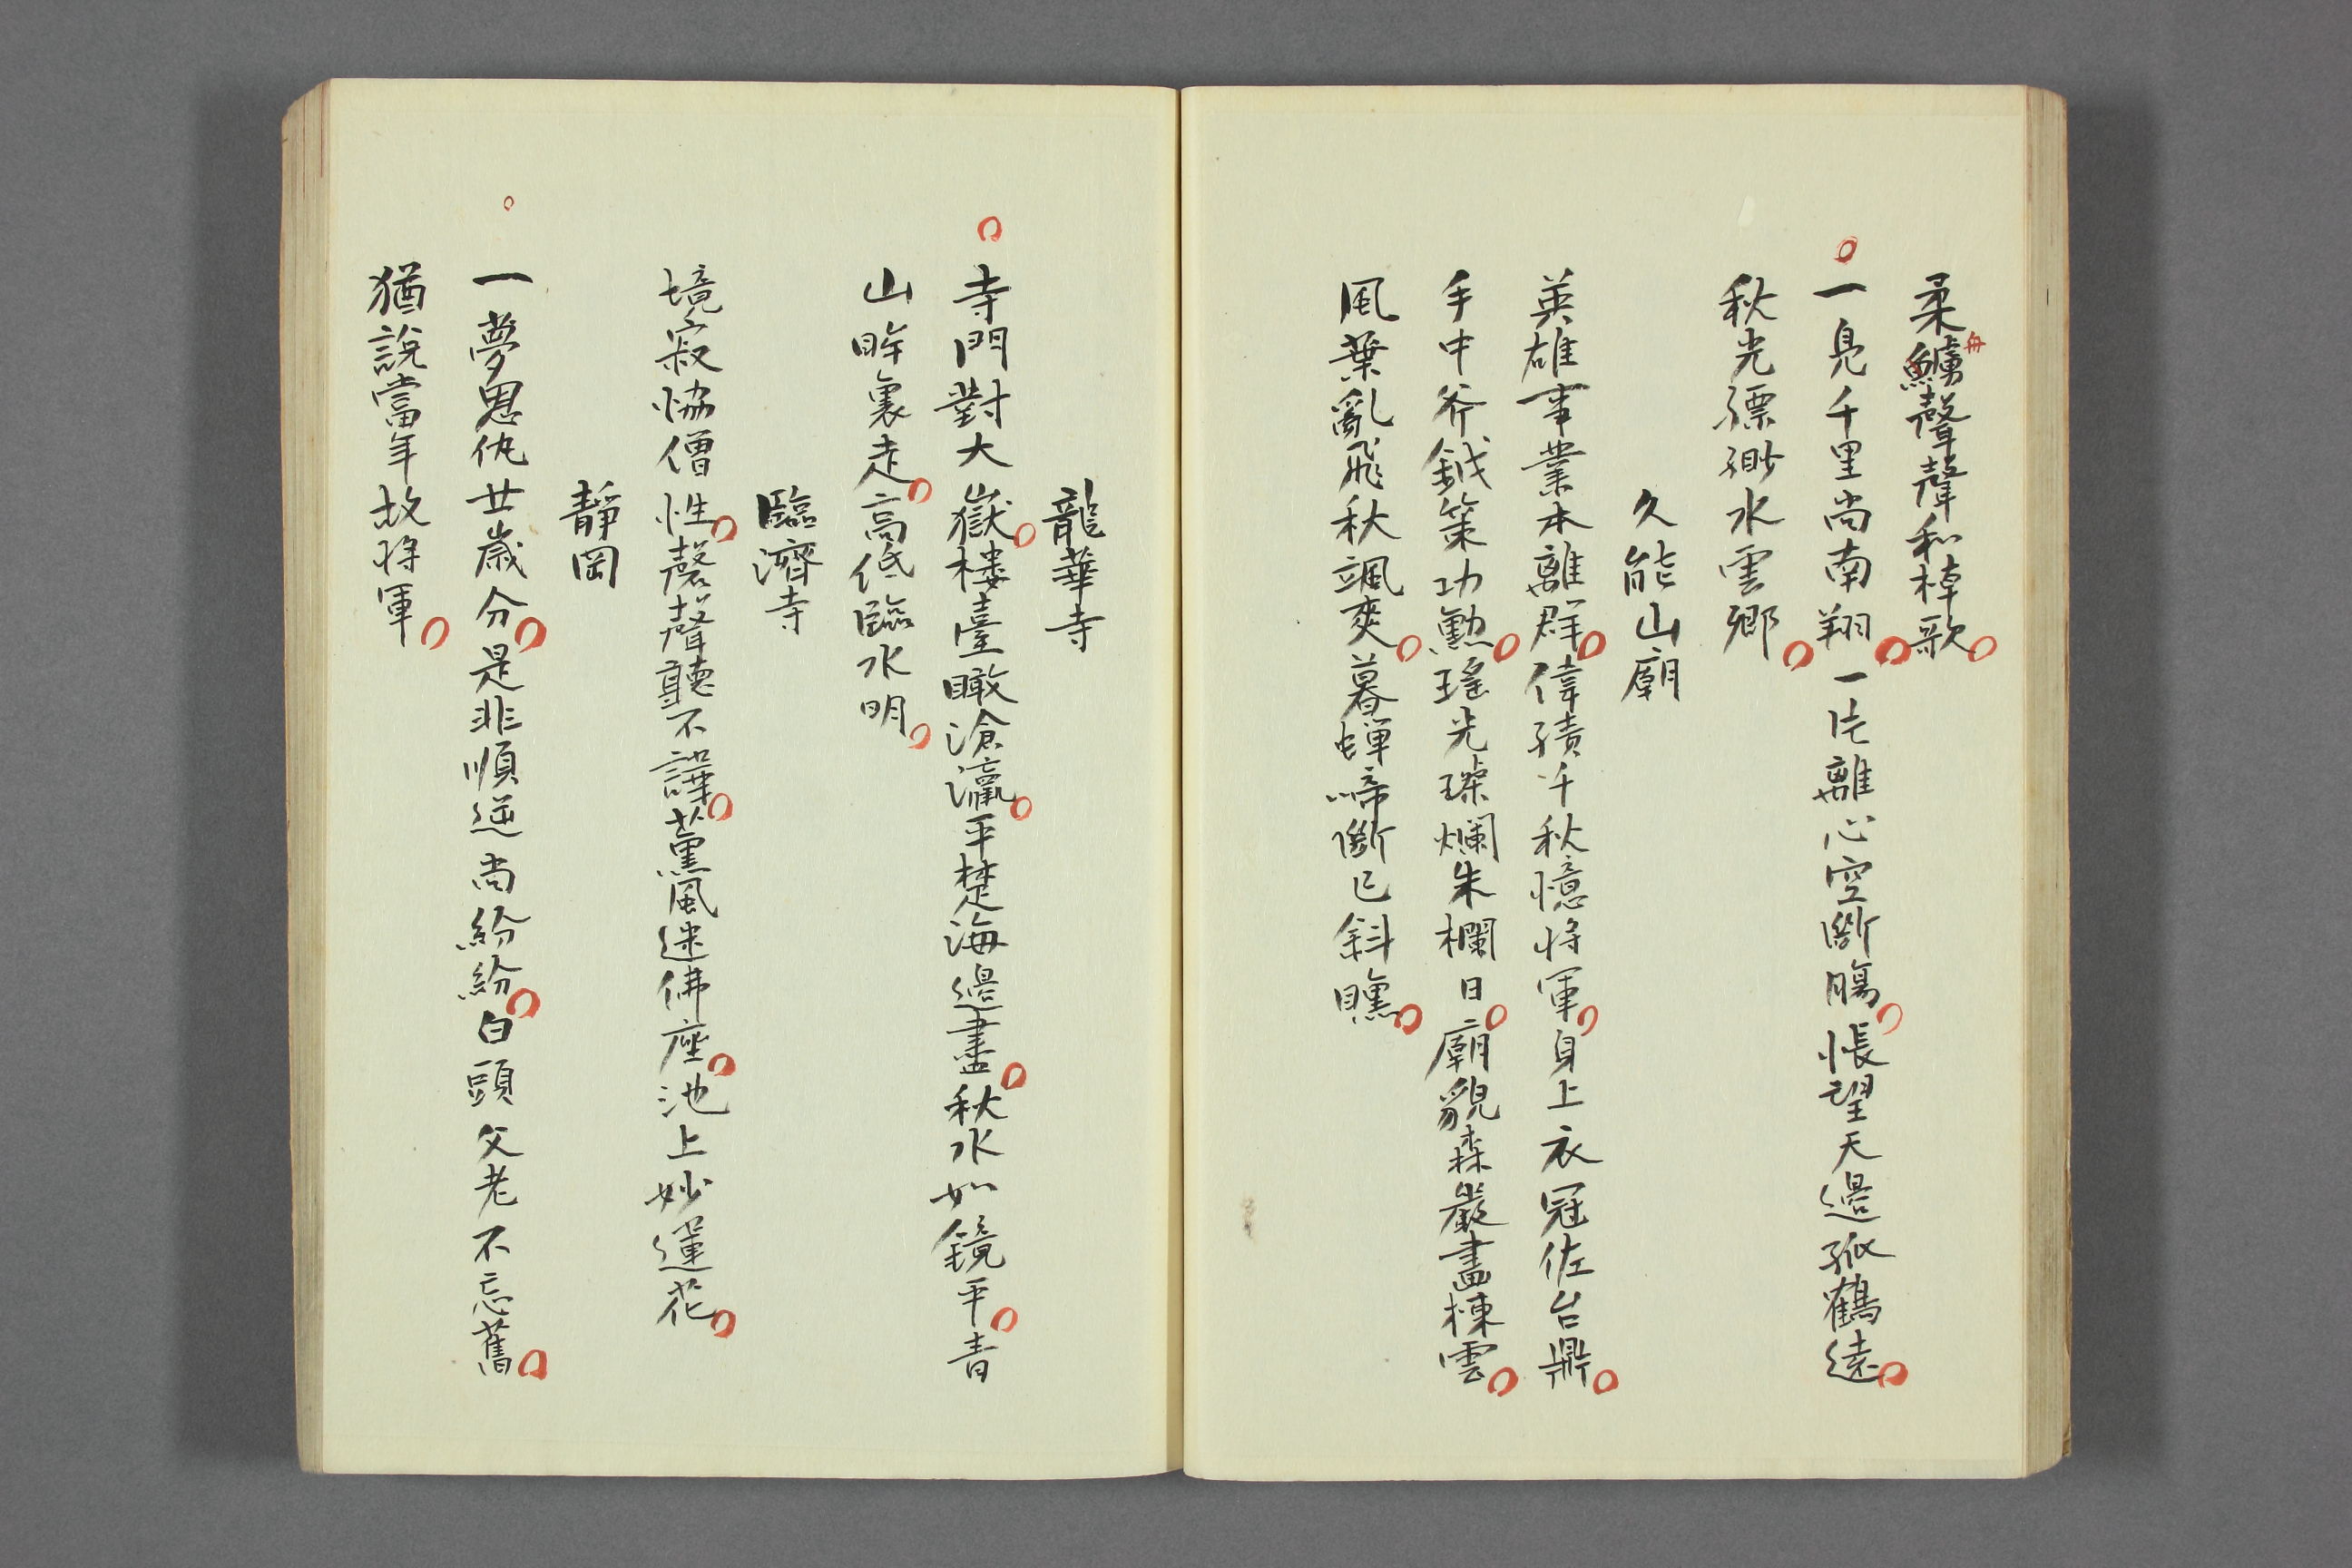 柔鱸聲聲和棹歌
舟
一鳧千里尚南翔一片離心空斷腸悵望天邊孤鶴遠
秋光縹緲水雲鄉
久能山廟
英雄事業本離群偉績千秋憶将軍身上衣冠佐台鼎
手中斧鉞策功勳瑤光璨爛朱欄日廟貌森嚴畫棟雲
風葉亂飛秋颯爽暮蟬啼斷已斜曛
龍華寺
寺門對大嶽楼臺瞰滄瀛平楚海邊盡秋水如鏡平青
山眸裏走高低臨水明
臨濟寺
境寂恊僧性磬聲聽不譁薫風迷佛座池上妙蓮花
靜岡
一夢恩仇廿歲分是非順逆尚紛紛白頭父老不忘舊
猶說當年故将軍